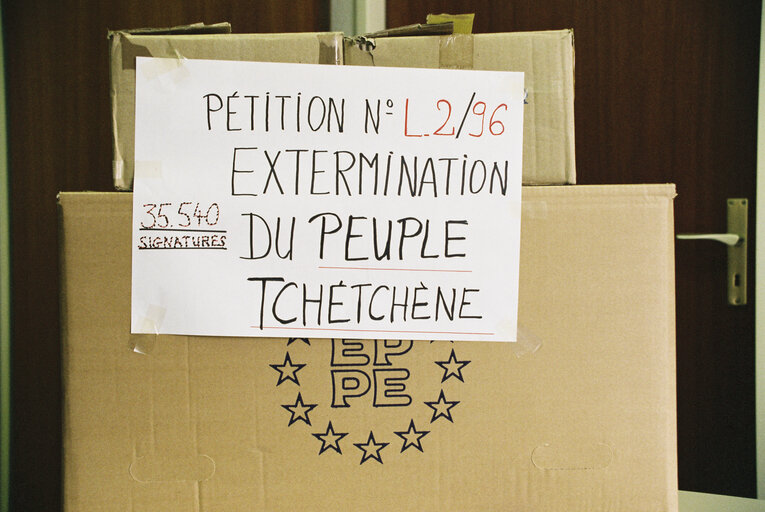 PÉTITION Nº L.2/96
EXTERMINATION
35.540
SIGNATURES
DU PEUPLE
TCHÉTCHÈNE
EP
PE